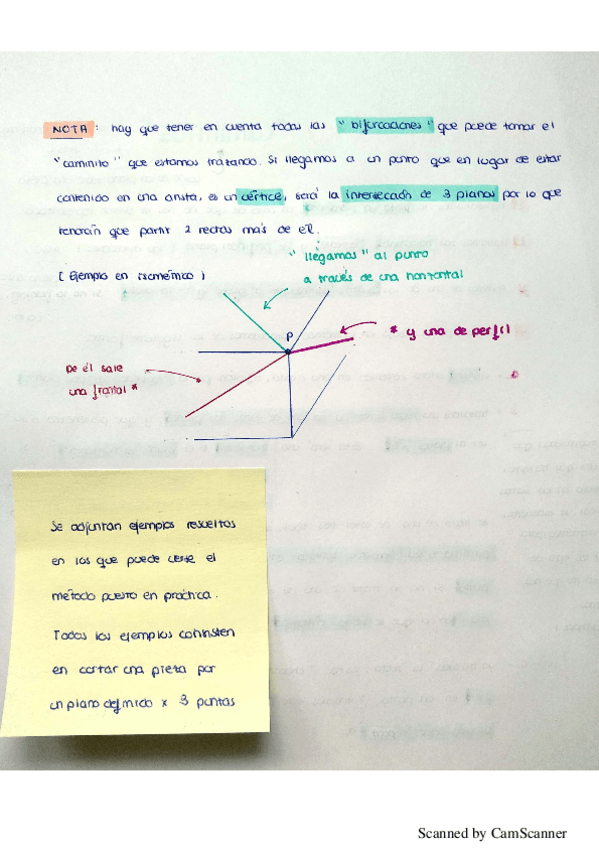 NOTA : hay que tener en cuenta todas las "bifurcaciones" que puede tomar el
"caminito" que estamos trazando. Si llegamos a un punto que en lugar de estar
contenido en una arista, es un vértice, será la intersección de 3 planos por lo que
tendrán que partir 2 rectas más de él.
( Ejemplo en isométrico )
"llegamos" al punto
a través de una horizontal
P
* y una de perfil
De él sale
una frontal *
Se adjuntan ejemplos resueltos
en los que puede verse el
método puesto en práctica.
Todos los ejemplos consisten
en cortar una pieza por
un plano definido x 3 puntos
Scanned by CamScanner